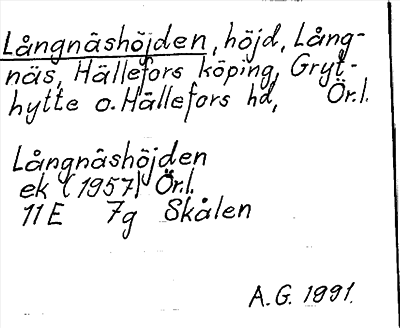 Långnäshöjden, höjd, Lång-
näs, Hällefors köping, Gryt-
hytte o. Hällefors hd, Ör.l.
Långnäshöjden
ek (1957) Ör.l.
11E 7g Skålen
A.G. 1991.